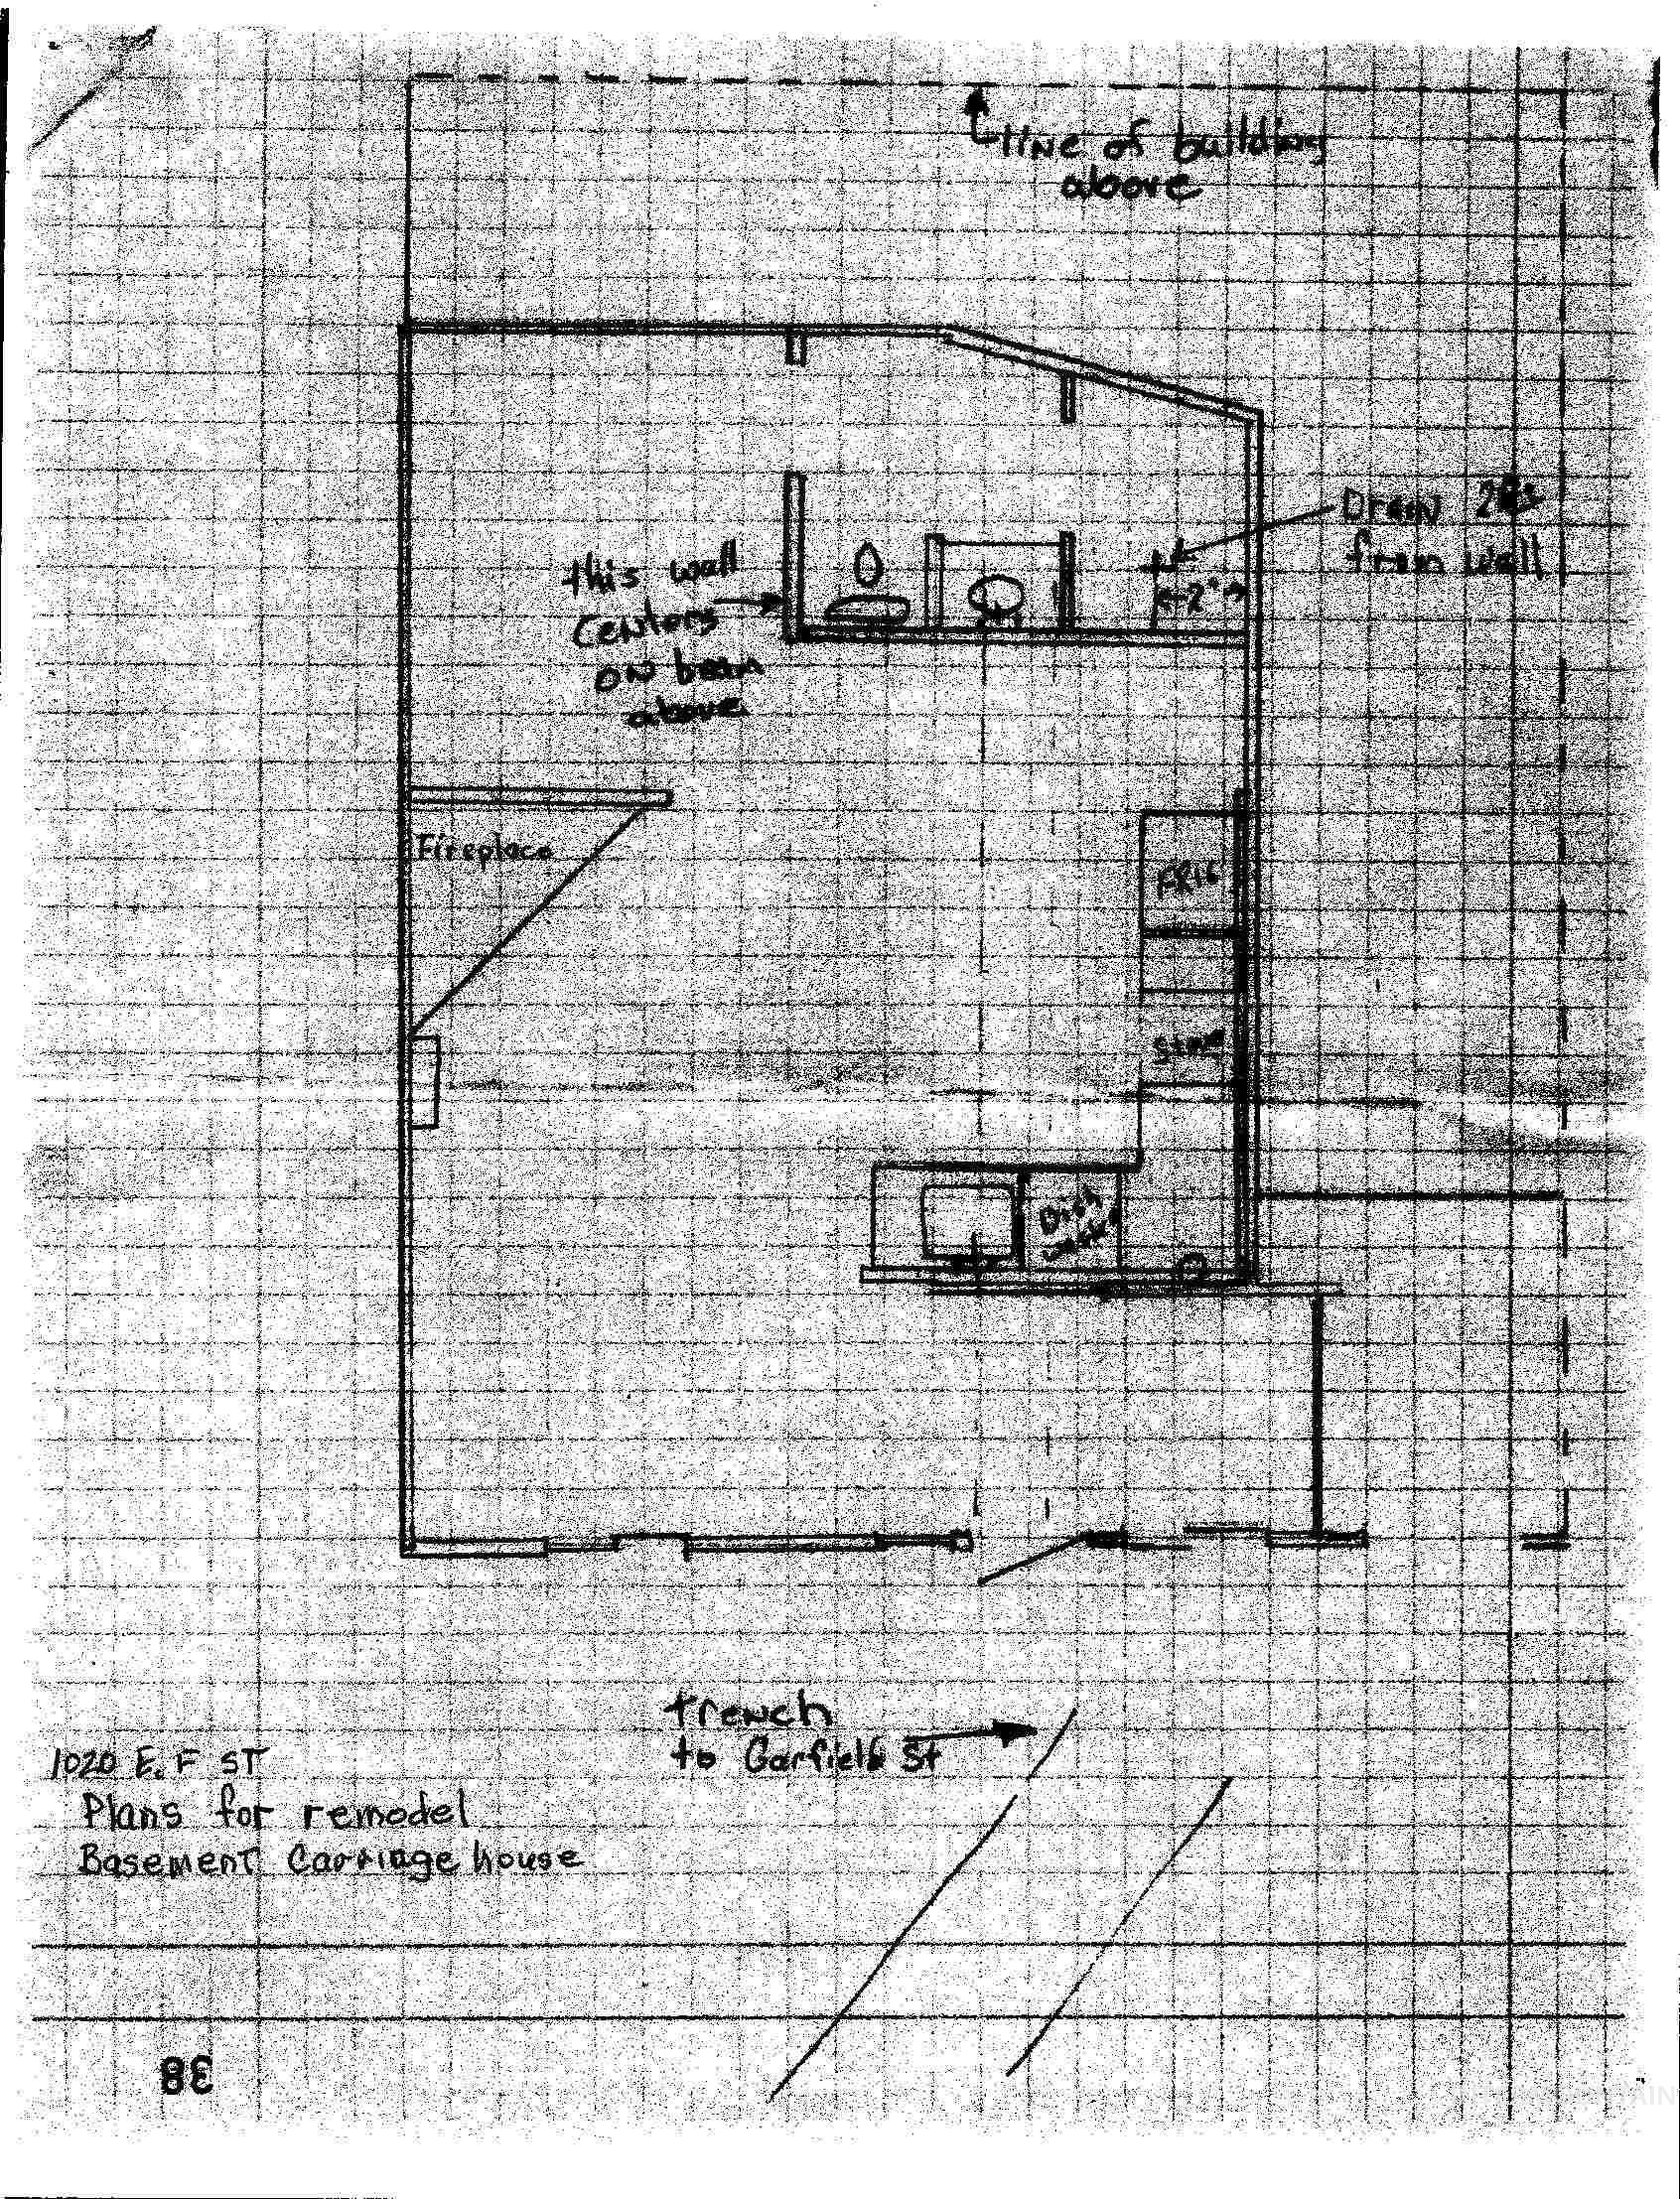 line of building
above
Drain
from wall
this wall
Centers
on beam
above
2'
Fireplace
FRIG
Stove
Dish
washer
trench
to Garfield St
1020 E. F ST
Plans for remodel
Basement Carriage house
38